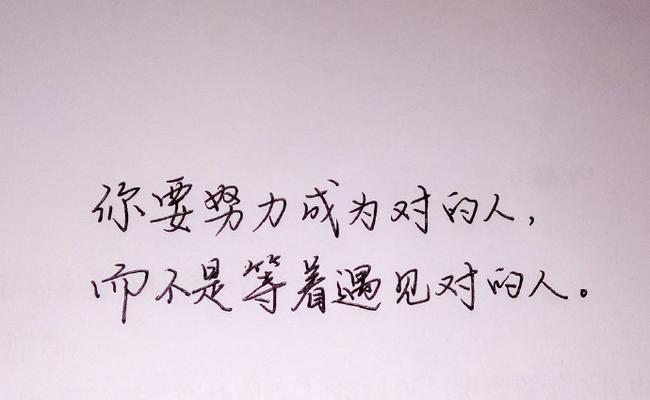 你要努力成为对的人,
而不是等着遇见对的人。